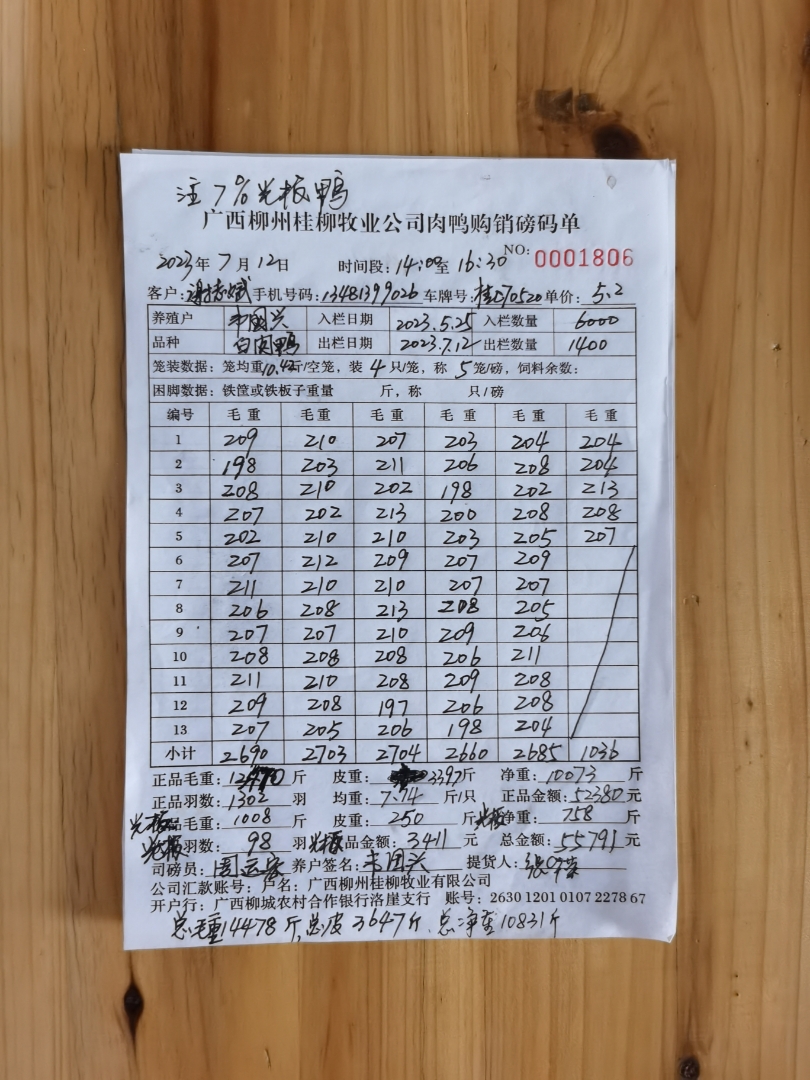 注7%光板鸭
广西柳州桂柳牧业公司肉鸭购销磅码单
2023年7月12日 时间段:14:00至16:30 NO:0001806
客户: 手机号码:13481399026 车牌号:桂 70520 单价:5.2
养殖户 韦国兴 入栏日期 2023.5.25 入栏数量 6000
品种 白肉鸭 出栏日期 2023.7.12 出栏数量 1400
笼装数据:笼均重10.42斤/空笼,装4只/笼,称5笼/磅,饲料余数:
困脚数据:铁筐或铁板子重量 斤,称 只/磅
编号 毛重 毛重 毛重 毛重 毛重 毛重
1 209 210 207 203 204 204
2 198 203 211 206 208 204
3 208 210 202 198 202 213
4 207 202 213 200 208 208
5 202 210 210 203 205 207
6 207 212 209 207 209
7 211 210 210 207 207
8 206 208 213 208 205
9 207 207 210 209 206
10 208 208 208 206 211
11 211 210 208 209 208
12 209 208 197 206 208
13 207 205 206 198 204
小计 2690 2703 2704 2660 2685 1036
正品毛重:12470斤 皮重:2397斤 净重:10073斤
正品羽数:1302羽 均重:7.74斤/只 正品金额:52380元
光板品毛重:1008斤 皮重:250斤 光板净重:758斤
光板羽数:98羽 光板品金额:3411元 总金额:55791元
司磅员: 养户签名:韦国兴 提货人:
公司汇款账号:户名:广西柳州桂柳牧业有限公司
开户行:广西柳城农村合作银行洛崖支行 账号:2630 1201 0107 2278 67
总毛重14478斤,总皮3647斤.总净重10831斤